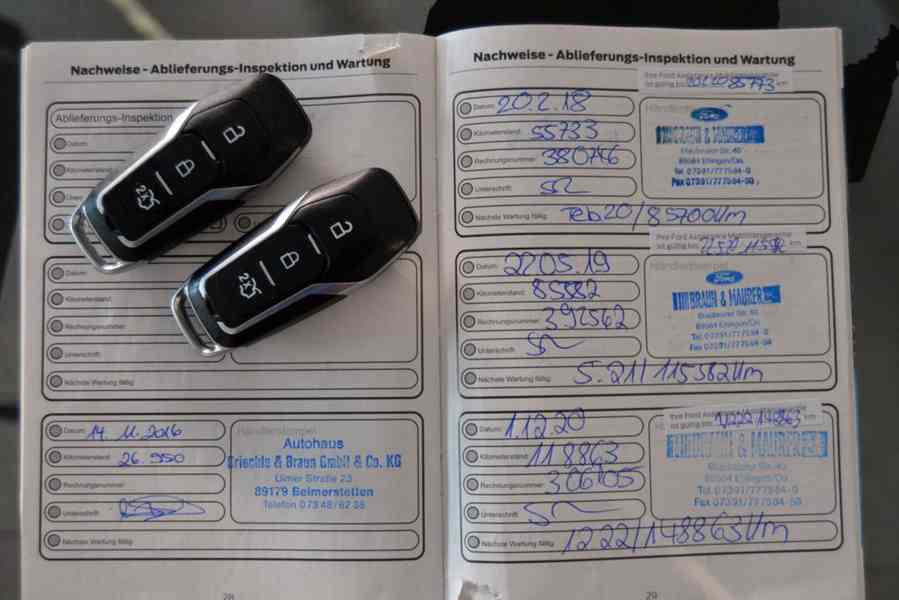 Nachweise - Ablieferungs-Inspektion und Wartung
Ablieferungs-Inspektion
Datum:
Kilometerstand:
Datum:
Kilometerstand:
Rechnungsnummer:
Unterschrift:
Nächste Wartung fällig:
Datum: 14.11.2016
Kilometerstand: 26.950
Rechnungsnummer:
Unterschrift:
Nächste Wartung fällig:
Händlerstempel
Autohaus
& Braun GmbH & Co. KG
Ulmer Straße 23
89179 Beimerstetten
Telefon 07348/
28
Nachweise - Ablieferungs-Inspektion und Wartung
Ihre Ford Assistance
ist gültig bis: km
Datum: 20.2.18
Kilometerstand: 55733
Rechnungsnummer: 380746
Unterschrift:
Nächste Wartung fällig: Feb20/85700km
Ford
& MAURER
89584 Ehingen/Do.
Tel. 07391/777584-0
Fax 07391/777584-50
Ihre Ford Assistance
ist gültig bis: km
Datum: 22.05.19
Kilometerstand: 85582
Rechnungsnummer: 392562
Unterschrift:
Nächste Wartung fällig: 5.21/115582km
Händlerstempel
Ford
BRAUN & MAURER
89584 Ehingen/Do.
Tel. 07391/777584-0
Fax 07391/777584-50
Ihre Ford Assistance
ist gültig bis: 1222/148863 km
Datum: 1.12.20
Kilometerstand: 118863
Rechnungsnummer: 306105
Unterschrift:
Nächste Wartung fällig: 1222/148863km
BRAUN & MAURER
89584 Ehingen/Do.
Tel. 07391/777584-0
Fax 07391/777584-50
29